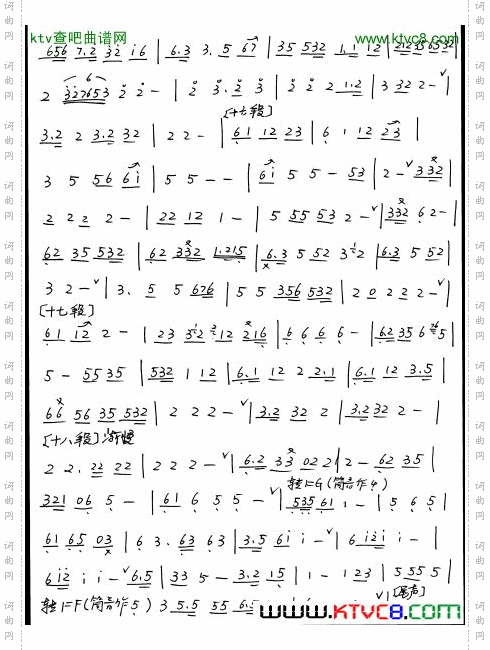 ktv查吧曲谱网 www.ktvc8.com
656 7.2 32 i6 | 6.3 3. 5 67 | 35 532 1.1 12 | 212356532
2 327653 2 2 - | 2 3. 2 3 | 2 2 2 1.2 | 3 32 2 - |
[十六段]
3.2 2 3.2 32 | 2 2 - | 61 12 23 | 6 1 12 23 |
3 5 56 6i | 5 5 - - | 6i 5 5 - 53 | 2 - 332 |
2 2 2 2 - | 22 12 1 - | 5 55 53 2 - | 332 62 - |
62 35 532 | 62 332 1.215 | 6.3 5 52 3 2 | 6.3 5 52 |
3 2 - | 3. 5 5 676 | 5 5 356 532 | 2 0 2 2 2 - |
[十七段]
61 12 2 - | 23 352 212 216 | 6 6 6 6 - | 62 35 6 5 |
5 - 55 35 | 532 1 12 | 6.1 12 2 2.1 | 6.1 12 3.5 |
66 56 35 532 | 2 2 2 - | 3.2 32 2 | 3.2 32 2 - |
[十八段] 渐慢
2 2. 22 22 | 2 2 2 - | 6.2 33 02 2 | 2 - 62 35 |
转1=G(筒音作4)
321 06 5 - | 61 6 5 5 - | 535 61 1 - | 5 6 5 |
61 65 03 | 6 3. 63 63 | 3.5 6i i - | 6 i2i i - |
6i2 i i - 6.5 | 33 5 - 3.2 15 | 1 - 1 23 | 5 55 5 |
转1=F(筒音作5) 3 5.5 55 [尾声]
www.KTVC8.com
词曲网